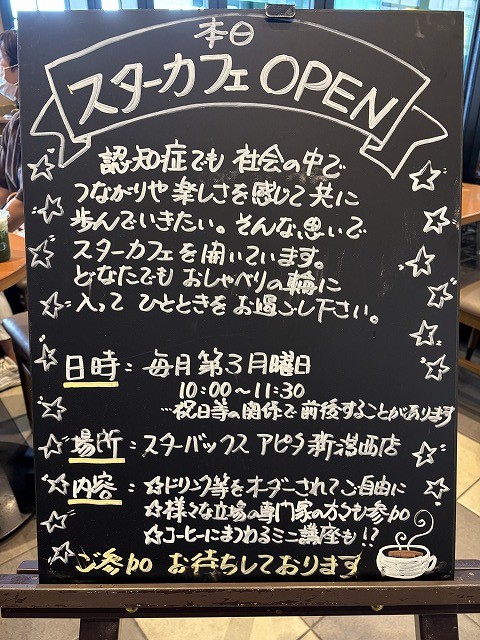 本日
スターカフェ OPEN
認知症でも 社会の中で
つながりや 楽しさを感じて 共に
歩んでいきたい。そんな思いで
スターカフェを開いています。
どなたでも おしゃべりの輪に
入って ひとときをお過ごし下さい。
日時：毎月 第3月曜日
10:00〜11:30
…祝日等の関係で前後することがあります
場所：スターバックス アピタ新潟西店
内容：☆ドリンク等をオーダーされてご自由に
☆様々な立場の専門家の方々も参加
☆コーヒーにまつわるミニ講座も!?
ご参加 お待ちしております